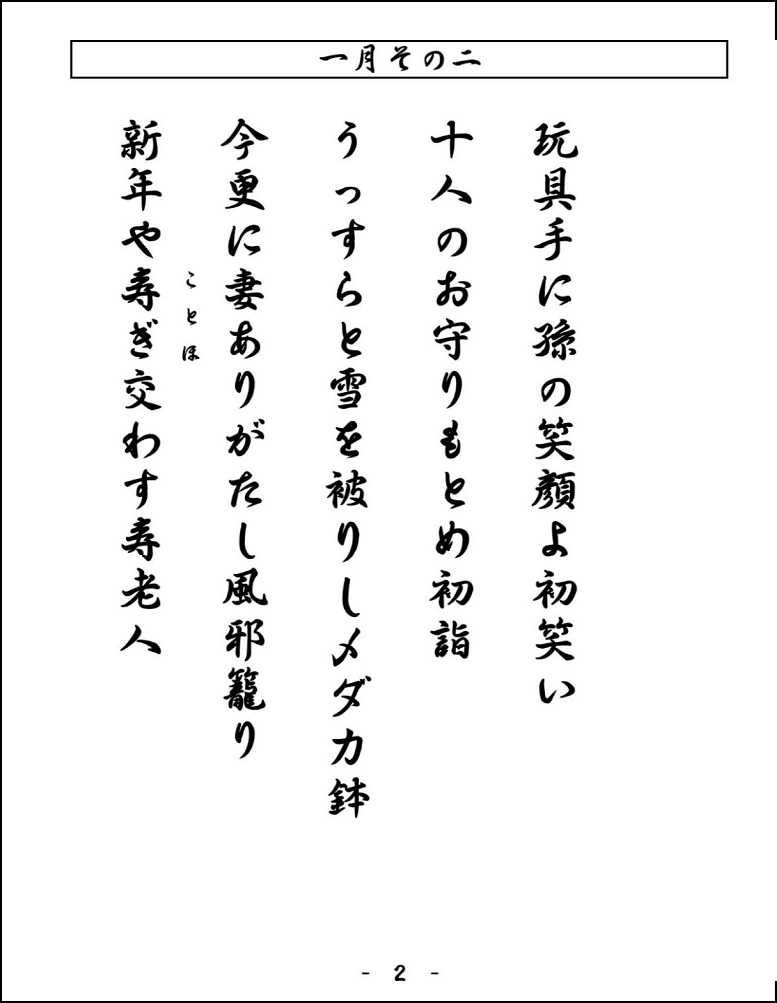 一月その二
玩具手に孫の笑顔よ初笑い
十人のお守りもとめ初詣
うっすらと雪を被りしメダカ鉢
今更に妻ありがたし風邪籠り
ことほ
新年や寿ぎ交わす寿老人
- 2 -